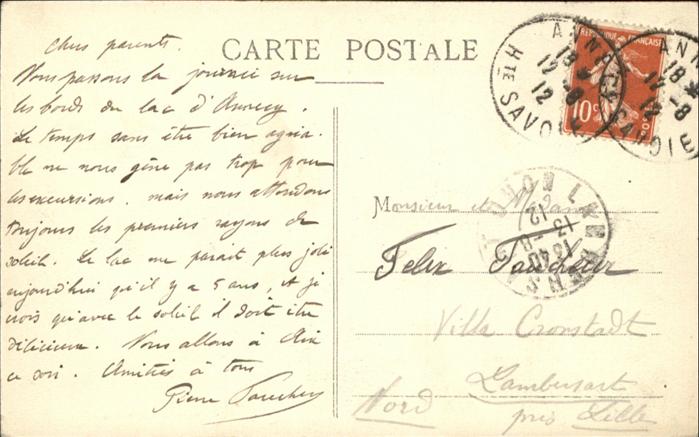 CARTE POSTALE
Chers parents.
Vous passons la journée sur
les bords du lac d'Annecy.
Le temps sans être bien agréa-
ble ne nous gêne pas trop pour
les excursions. mais nous attendons
toujours les premiers rayons de
soleil. Le lac me parait plus joli
aujourd'hui qu'il y a 5 ans, et je
crois qu'avec le soleil il doit être
délicieux. Nous allons à Aix
ce soir. Amitiés à tous
Pierre
RÉPUBLIQUE FRANÇAISE
10
ANNECY
12-8
12
HTE SAVOIE
ANNECY
18
11-8
12
SAVOIE
13-8
12
Monsieur et Madame
Felix
Villa Cronstadt
Lambersart
près Lille
Nord